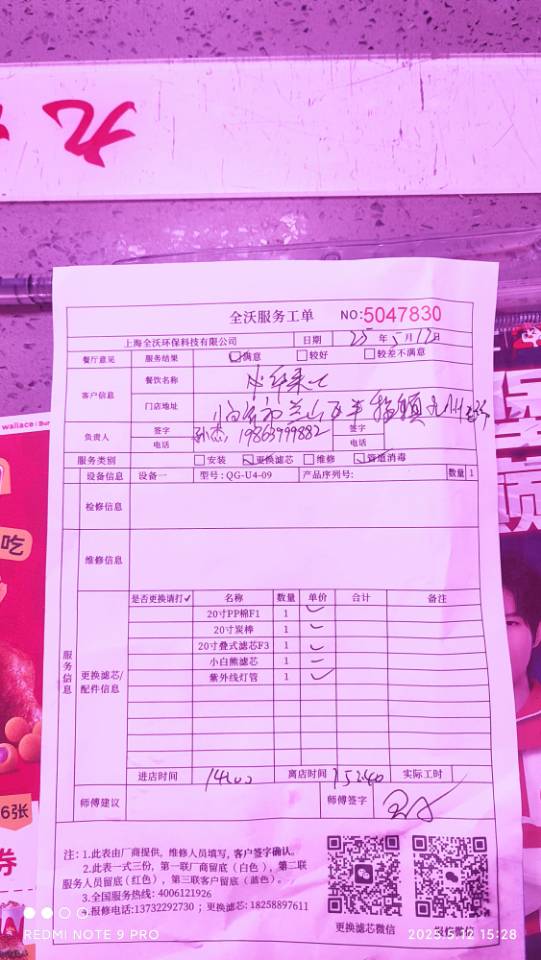 九
wallace
吃
6张
券
全沃服务工单 NO:5047830
上海全沃环保科技有限公司 日期 25年5月12日
餐厅意见 服务结果 ☑满意 □较好 □较差不满意
客户信息 餐饮名称
门店地址
负责人 签字 孙杰 签字
电话 19863999882 电话
服务类别 □安装 ☑更换滤芯 □维修 ☑管道消毒
设备信息 设备一 型号:QG-U4-09 产品序列号: 数量 1
检修信息
维修信息
服务信息
更换滤芯/配件信息
是否更换请打✓ 名称 数量 单价 合计 备注
20寸PP棉F1 1
20寸炭棒 1
20寸叠式滤芯F3 1
小白熊滤芯 1
紫外线灯管 1
进店时间 14:00 离店时间 15:40 实际工时
师傅建议 师傅签字
注: 1.此表由厂商提供，维修人员填写，客户签字确认。
2.此表一式三份，第一联厂商留底（白色），第二联
服务人员留底(红色），第三联客户留底（蓝色）。
3.全国服务热线: 4006121926
4.报修电话:13732292730 ；更换滤芯: 18258897611
更换滤芯微信 报修微信
REDMI NOTE 9 PRO
2025.5.12 15:28